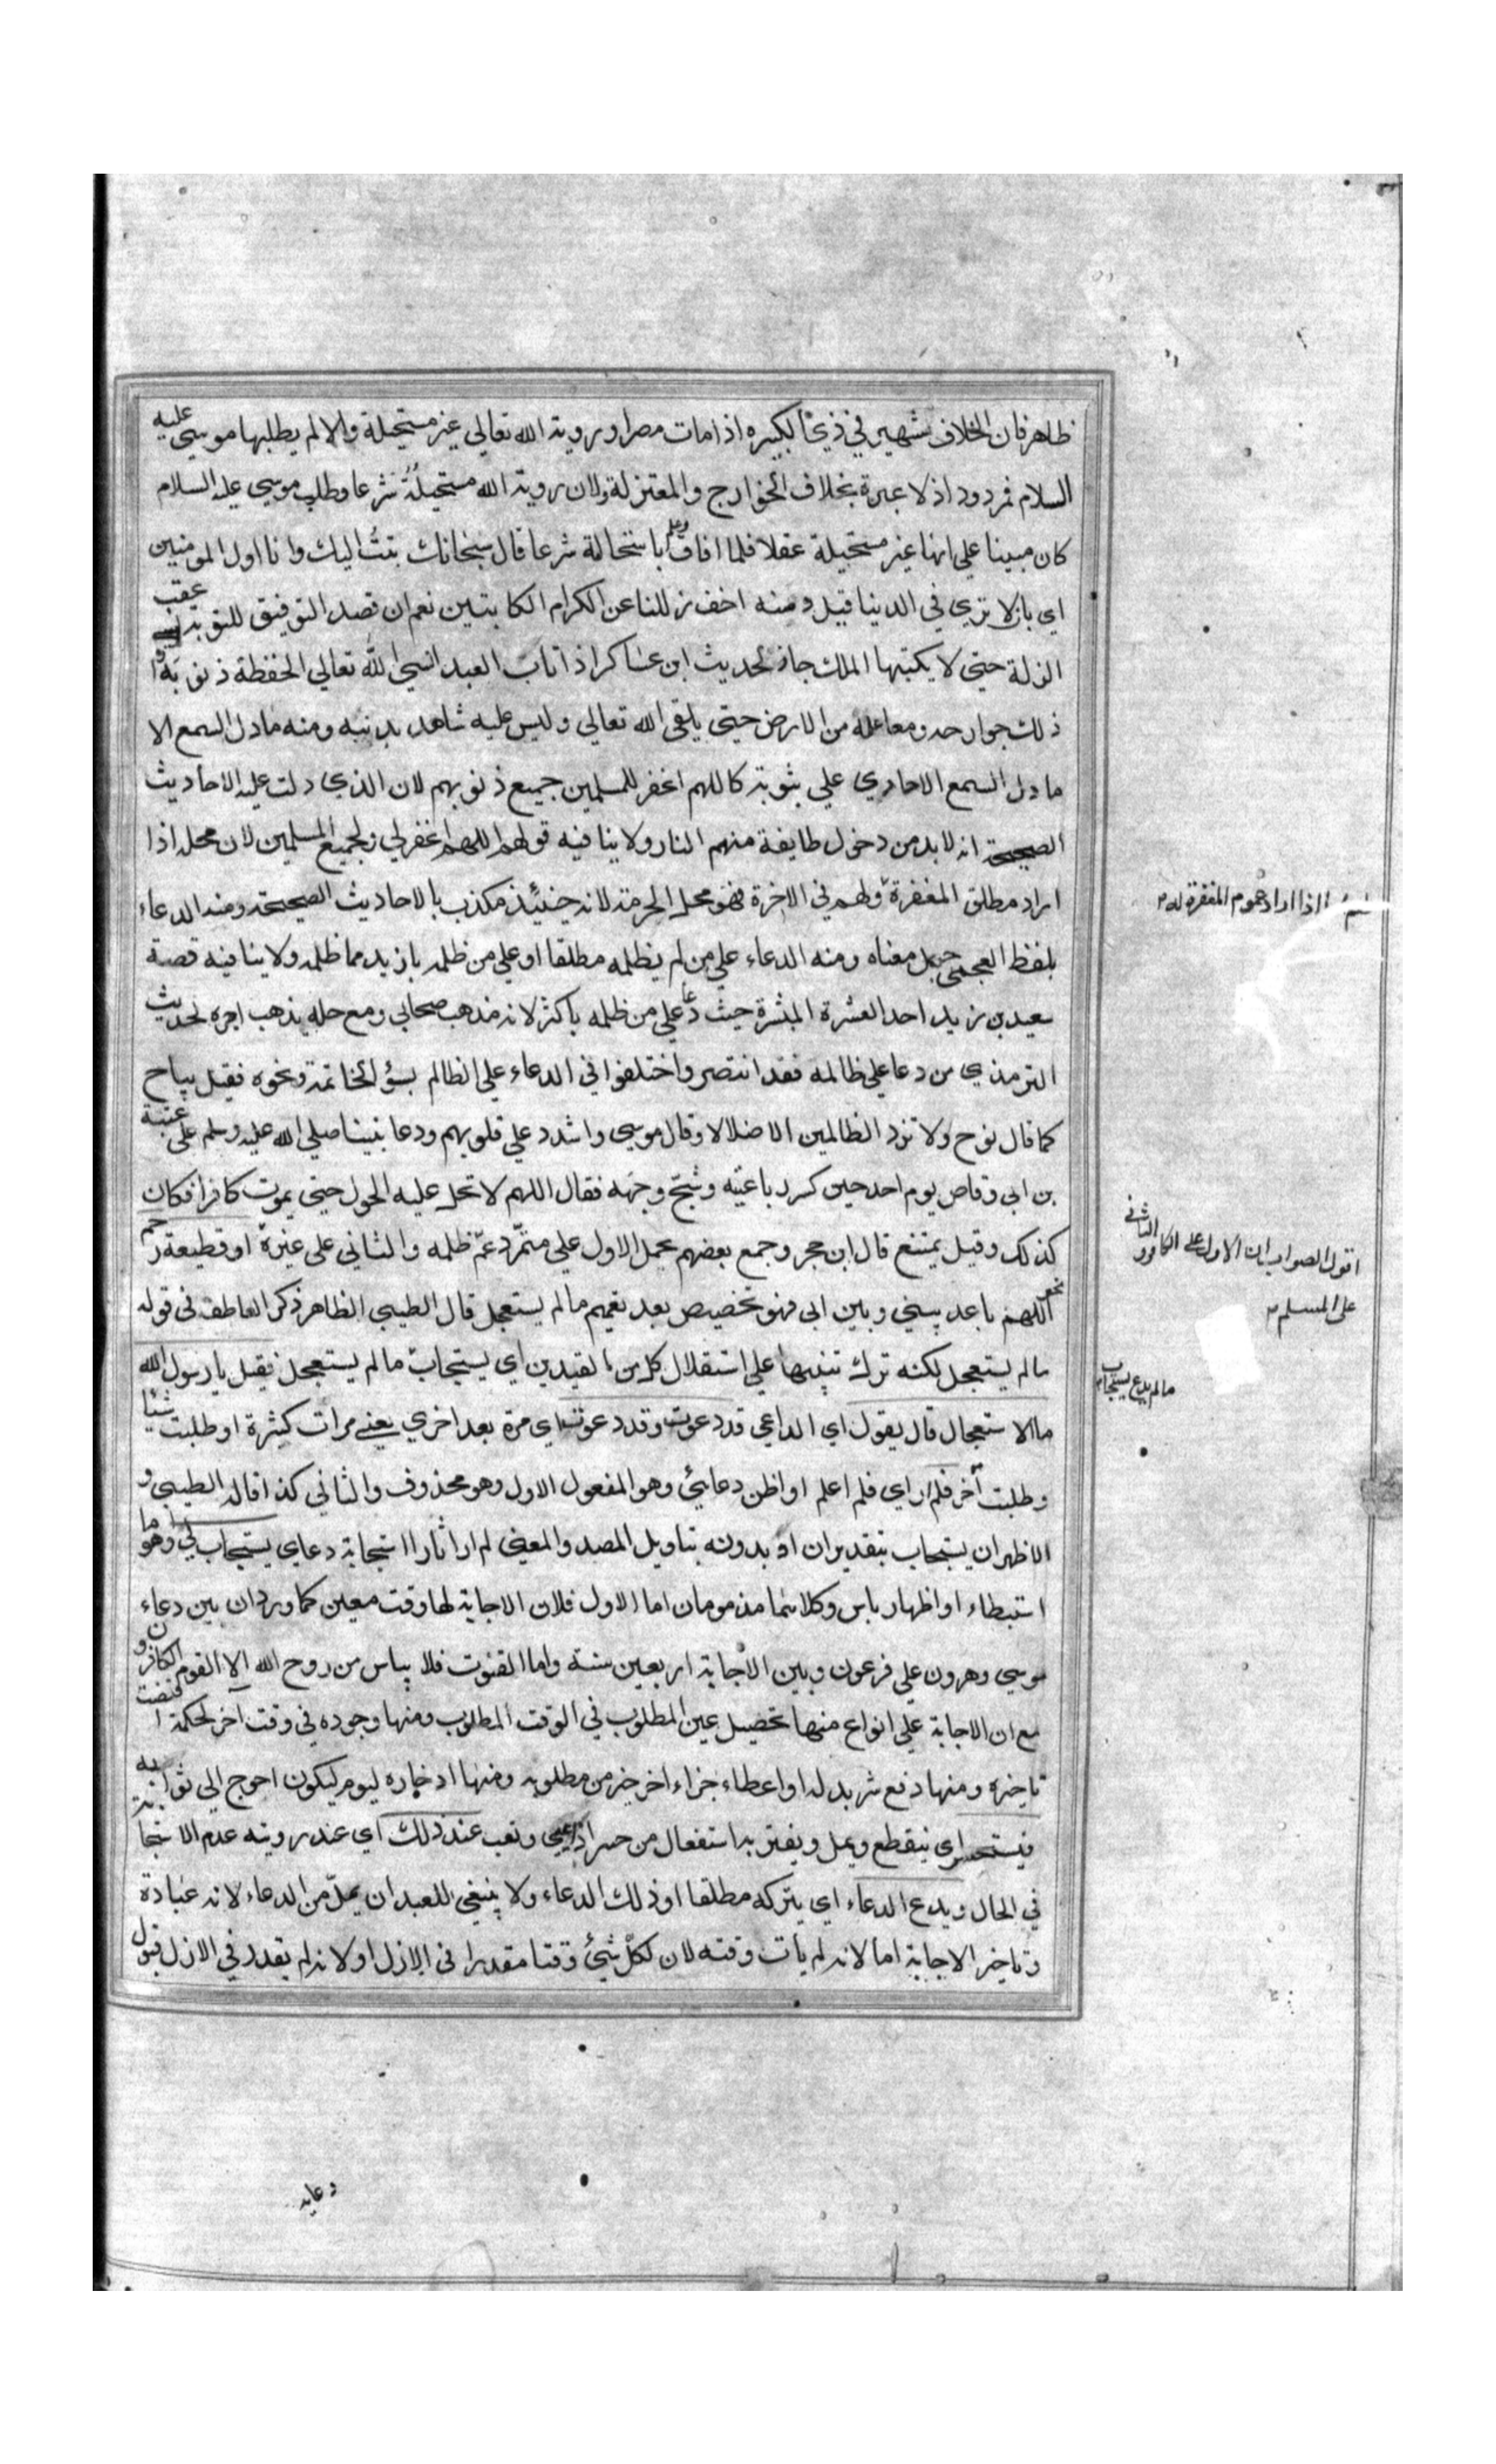 ظاهر فان الخلاف شهير في ذي الكبيره اذا مات مصرا وروية الله تعالي غير مستحيلة والا لم يطلبها موسي عليه
السلام فمردود اذ لا عبرة بخلاف الخوارج والمعتزلة ولان روية الله مستحيلة شرعا وطلب موسي عليه السلام
كان مبينا علي انها غير مستحيلة عقلا فلما افاق وعلم باستحالة شرعا قال سبحانك تبت اليك وانا اول المومنين
اي بانك لا تري في الدنيا قيل ومنه اخف زللنا عن الكرام الكاتبين نعم ان قصد التوفيق للتوبة عقب
الزلة حتي لا يكتبها الملك جاز لحديث ابن عساكر اذا تاب العبد انسي الله تعالي الحفظة ذنوبه و
ذلك جوارحه ومعامله من الارض حتي يلقي الله تعالي وليس عليه شاهد بذنبه ومنه ما دل السمع الا
ما دل السمع الاحادي علي ثبوته كاللهم اغفر للمسلمين جميع ذنوبهم لان الذي دلت عليه الاحاديث
الصحيحة انه لابد من دخول طايفة منهم النار ولا ينافيه قولهم اللهم اغفر لي ولجميع المسلمين لان محله اذا
اراد مطلق المغفرة ولهم في الاخرة فهو محل الحرمة لانه حينئذ مكذب بالاحاديث الصحيحة ومنه الدعاء
بلفظ العجمي جهل معناه ومنه الدعاء علي من لم يظلمه مطلقا او علي من ظلمه بازيد مما ظلمه ولا ينافيه قصة
سعيد بن زيد احد العشرة المبشرة حيث دعا علي من ظلمه باكثر لانه مذهب صحابي ومع حله يذهب اجره لحديث
الترمذي من دعا علي ظالمه فقد انتصر واختلفوا في الدعاء علي الظالم بسؤ الخاتمة ونحوه فقيل يباح
كما قال نوح ولا تزد الظالمين الا ضلالا وقال موسي واشدد علي قلوبهم ودعا نبينا صلي الله عليه وسلم علي عتبة
بن ابي وقاص يوم احد حين كسر رباعيته وشج وجهه فقال اللهم لا تحل عليه الحول حتي يموت كافرا فكان
كذلك وقيل يمتنع قال ابن حجر وجمع بعضهم بحمل الاول علي متمرد عم ظلمه والثاني علي غيره او قطيعة رحم
نحو اللهم باعد بيني وبين ابي فهو تخصيص بعد تعميم ما لم يستعجل قال الطيبي الظاهر ذكر العاطف في قوله
ما لم يستعجل لكنه ترك تنبيها علي استقلال كل من القيدين اي يستجاب ما لم يستعجل فقيل يا رسول الله
ما الاستعجال قال يقول اي الداعي قد دعوت وقد دعوت اي مرة بعد اخري يعني مرات كثيرة او طلبت شيئا
وطلبت آخر فلم ار اي فلم اعلم او اظن دعايئ وهو المفعول الاول وهو محذوف والثاني كذا قاله الطيبي و
الاظهر ان يستجاب بتقدير ان او بدونه بتاويل المصدر والمعني لم ار اثار استجابة دعاي يستجاب لي وهو اما
استبطاء او اظهار ياس وكلاهما مذمومان اما الاول فلان الاجابة لها وقت معين كما ورد ان بين دعاء
موسي وهرون علي فرعون وبين الاجابة اربعين سنة واما القنوت فلا يياس من روح الله الا القوم الكافرون
مع ان الاجابة علي انواع منها تحصيل عين المطلوب في الوقت المطلوب ومنها وجوده في وقت آخر لحكمة اقتضت
تاخيره ومنها دفع شر بدله او اعطاء جزاء اخر خير من مطلوبه ومنها ادخاره ليوم ليكون احوج الي ثوابه
فيستحسر اي ينقطع ويمل ويفتر به استفعال من حسر اذا اعيي وتعب عند ذلك اي عند رويته عدم الاستجابة
في الحال ويدع الدعاء اي يتركه مطلقا او ذلك الدعاء ولا ينبغي للعبد ان يمل من الدعاء لانه عبادة
وتاخير الاجابة اما لانه لم يات وقته لان لكل شيئ وقتا مقدرا في الازل او لانه لم يقدر في الازل قبول
دعايه
اذا اراد عموم المغفرة لهم
اقول الصواب ان الاول علي الكافر والثاني
علي المسلم
ما لم يدع يستجاب